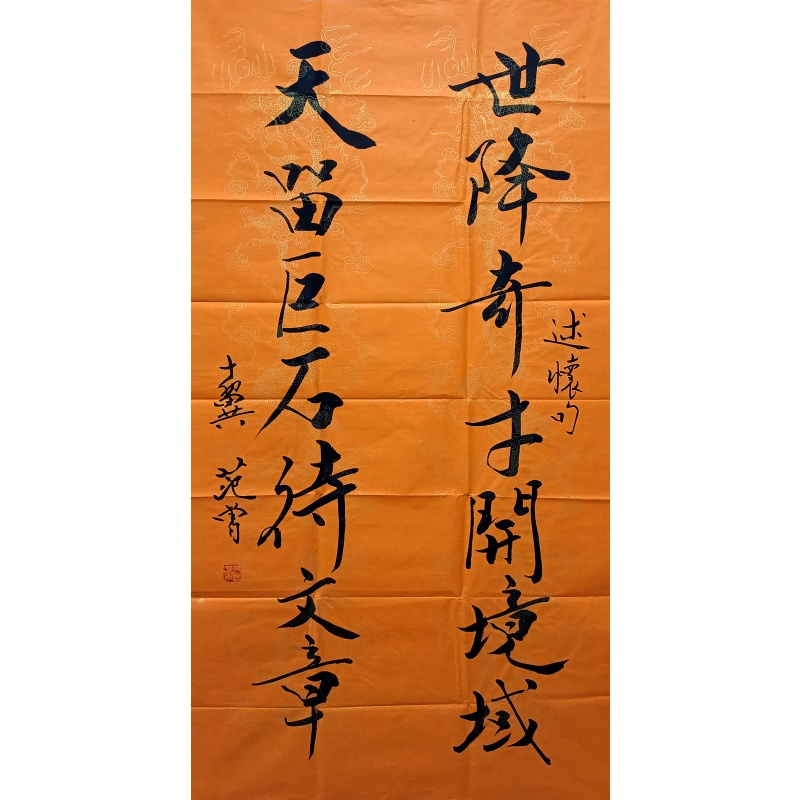 世降奇才開境域
述懷句
天留巨石待文章
十翼 范曾